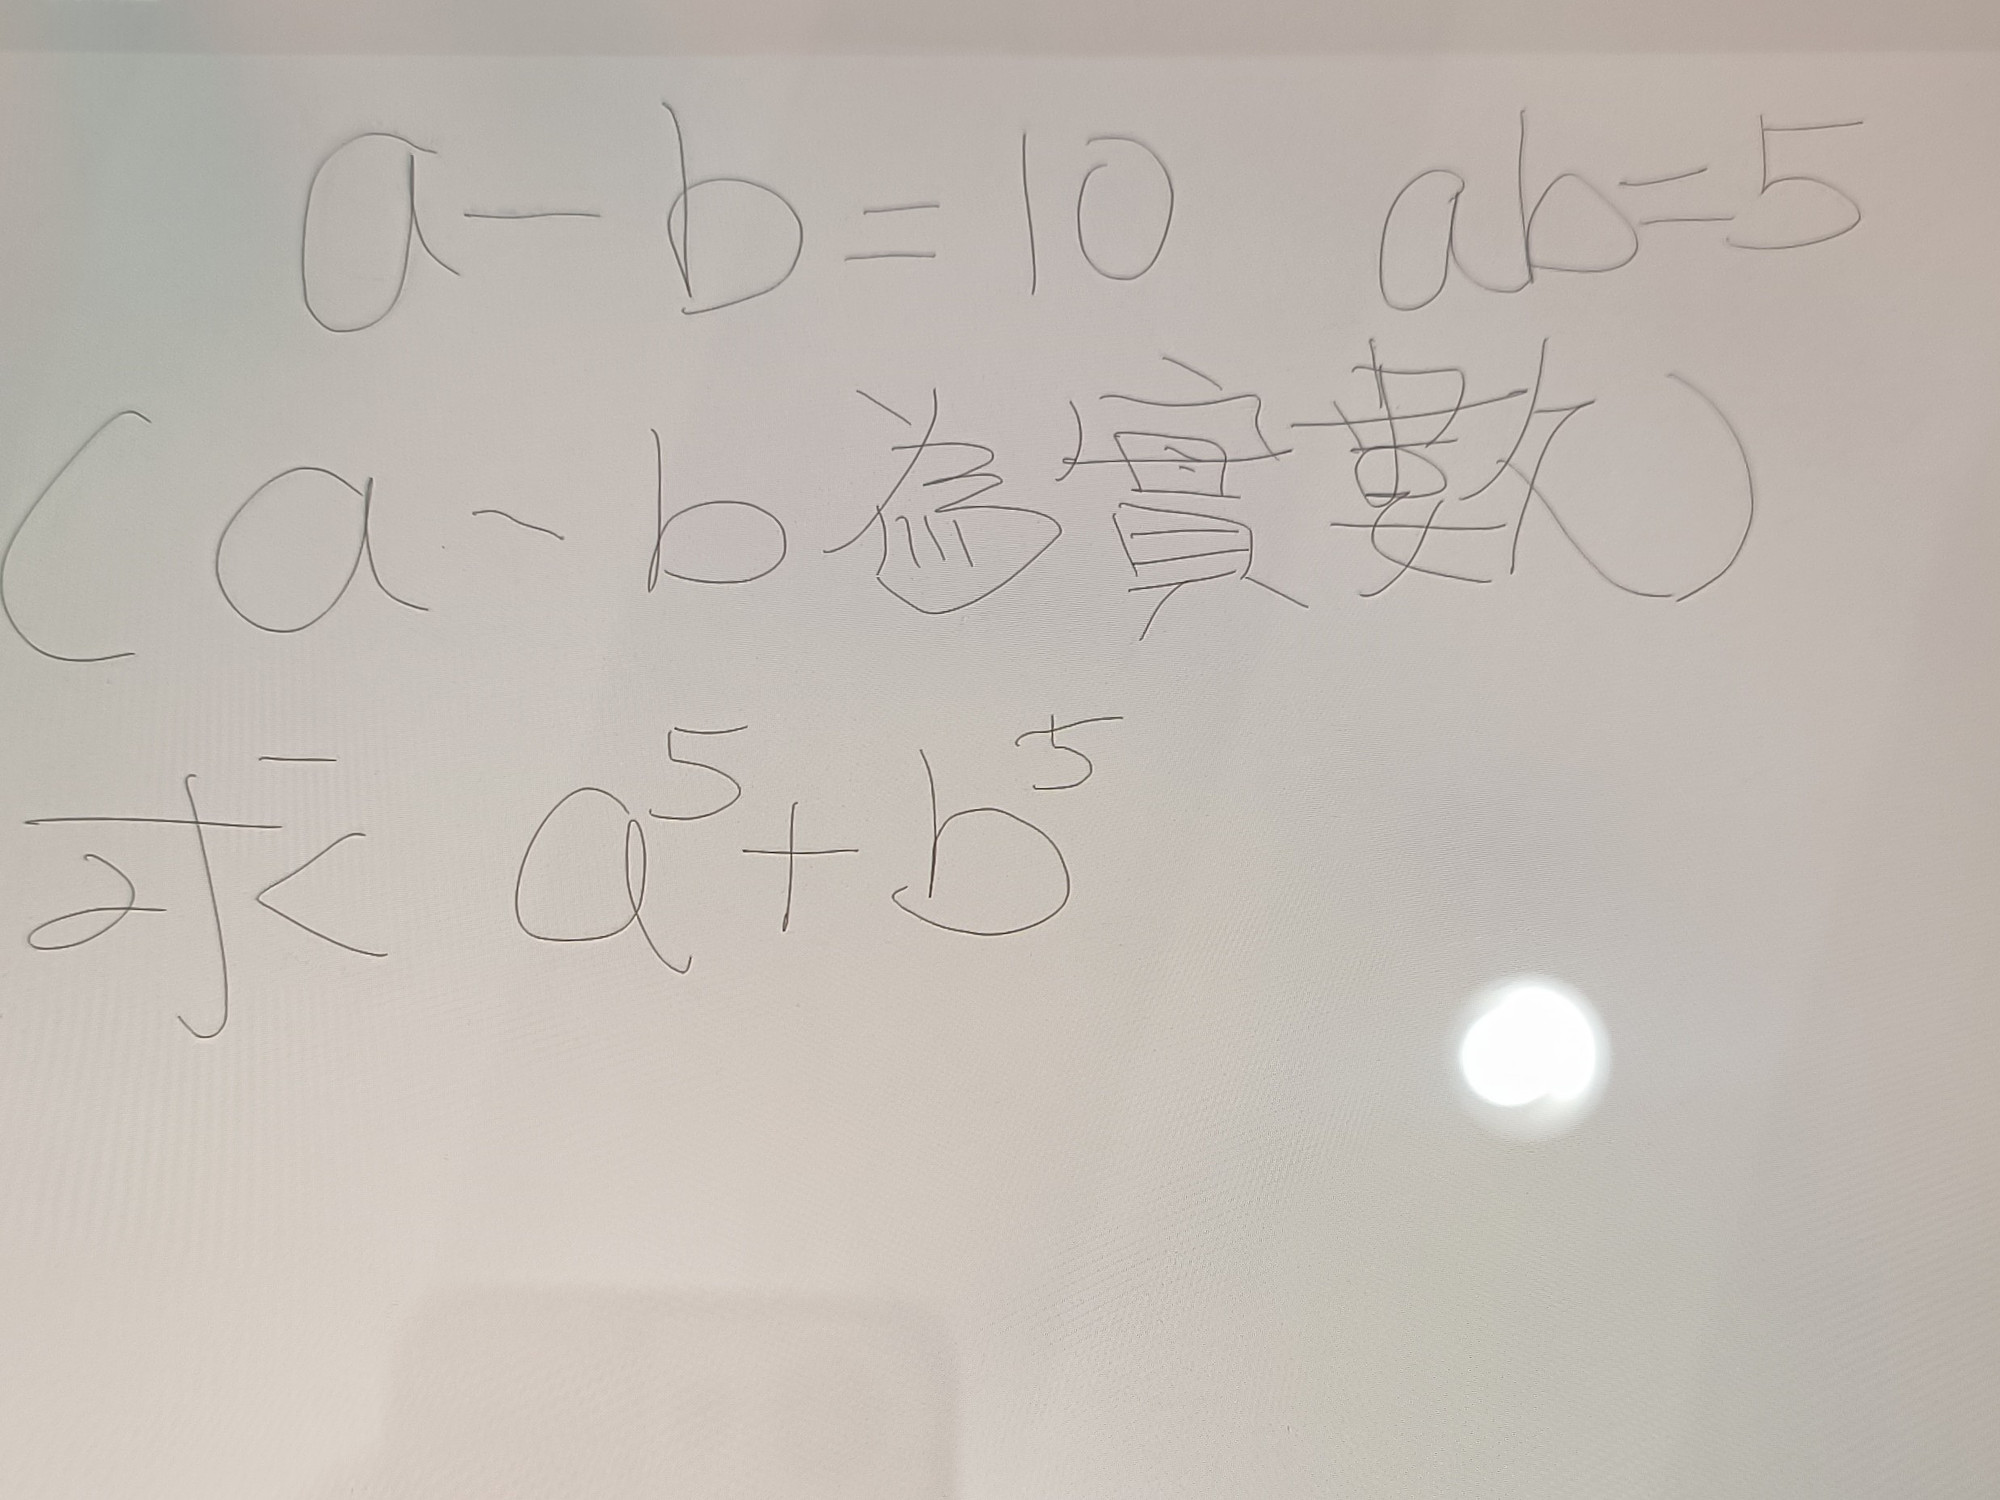 a-b=10 ab=5
(a-b為實數)
求 a⁵+b⁵